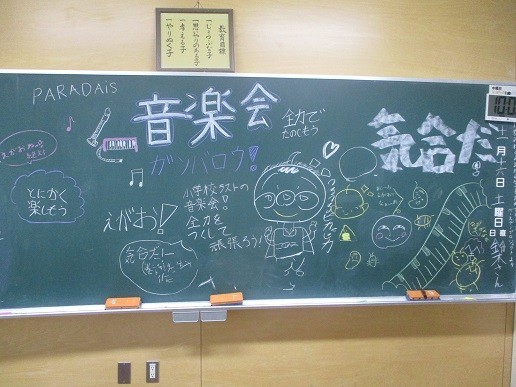 教育目標
一じょうぶな子
一思いやりのある子
一考える子
一やりぬく子
PARADAiS
音楽会
全力で
たのしもう
気合だ
ガンバロウ!
とにかく
楽しもう
えがお!
小学校ラストの
音楽会!
全力を
つくして
頑張ろう!
気合だー
100
十一月十六日土曜日
日直
鈴木さん